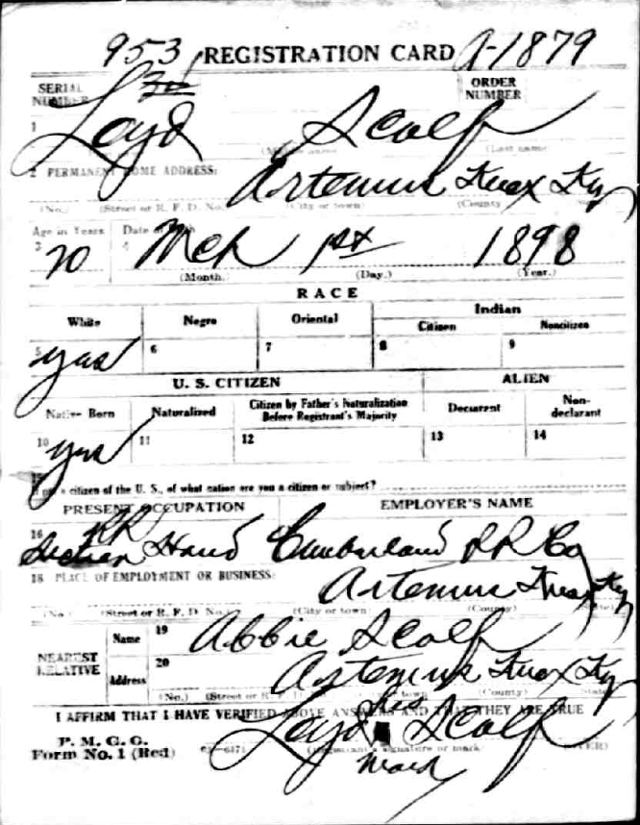 953 REGISTRATION CARD A-1879
SERIAL NUMBER ORDER NUMBER
1 Loyd Scalf
(Last name)
2 PERMANENT HOME ADDRESS:
Artemus Knox Ky
(No.) (Street or R. F. D. No.) (City or town) (County)
Age in Years Date of Birth
3 20 4 Mch 1st 1898
(Month.) (Day.) (Year.)
RACE
White Negro Oriental Indian
Citizen Noncitizen
5 yes 6 7 8 9
U. S. CITIZEN ALIEN
Native Born Naturalized Citizen by Father's Naturalization Before Registrant's Majority Declarant Non-declarant
10 yes 11 12 13 14
15 If not a citizen of the U. S., of what nation are you a citizen or subject?
PRESENT OCCUPATION EMPLOYER'S NAME
16 RR Section Hand Cumberland RR Co
18 PLACE OF EMPLOYMENT OR BUSINESS:
Artemus Knox Ky
(No.) (Street or R. F. D. No.) (City or town) (County) (State)
NEAREST RELATIVE Name 19 Abbie Scalf
Address 20 Artemus Knox Ky
(No.) (Street or R. F. D. No.) (City or town) (County) (State)
I AFFIRM THAT I HAVE VERIFIED ABOVE ANSWERS AND THAT THEY ARE TRUE
P. M. G. O.
Form No. 1 (Red)
Loyd his Scalf
(Registrant's signature or mark) (OVER)
mark